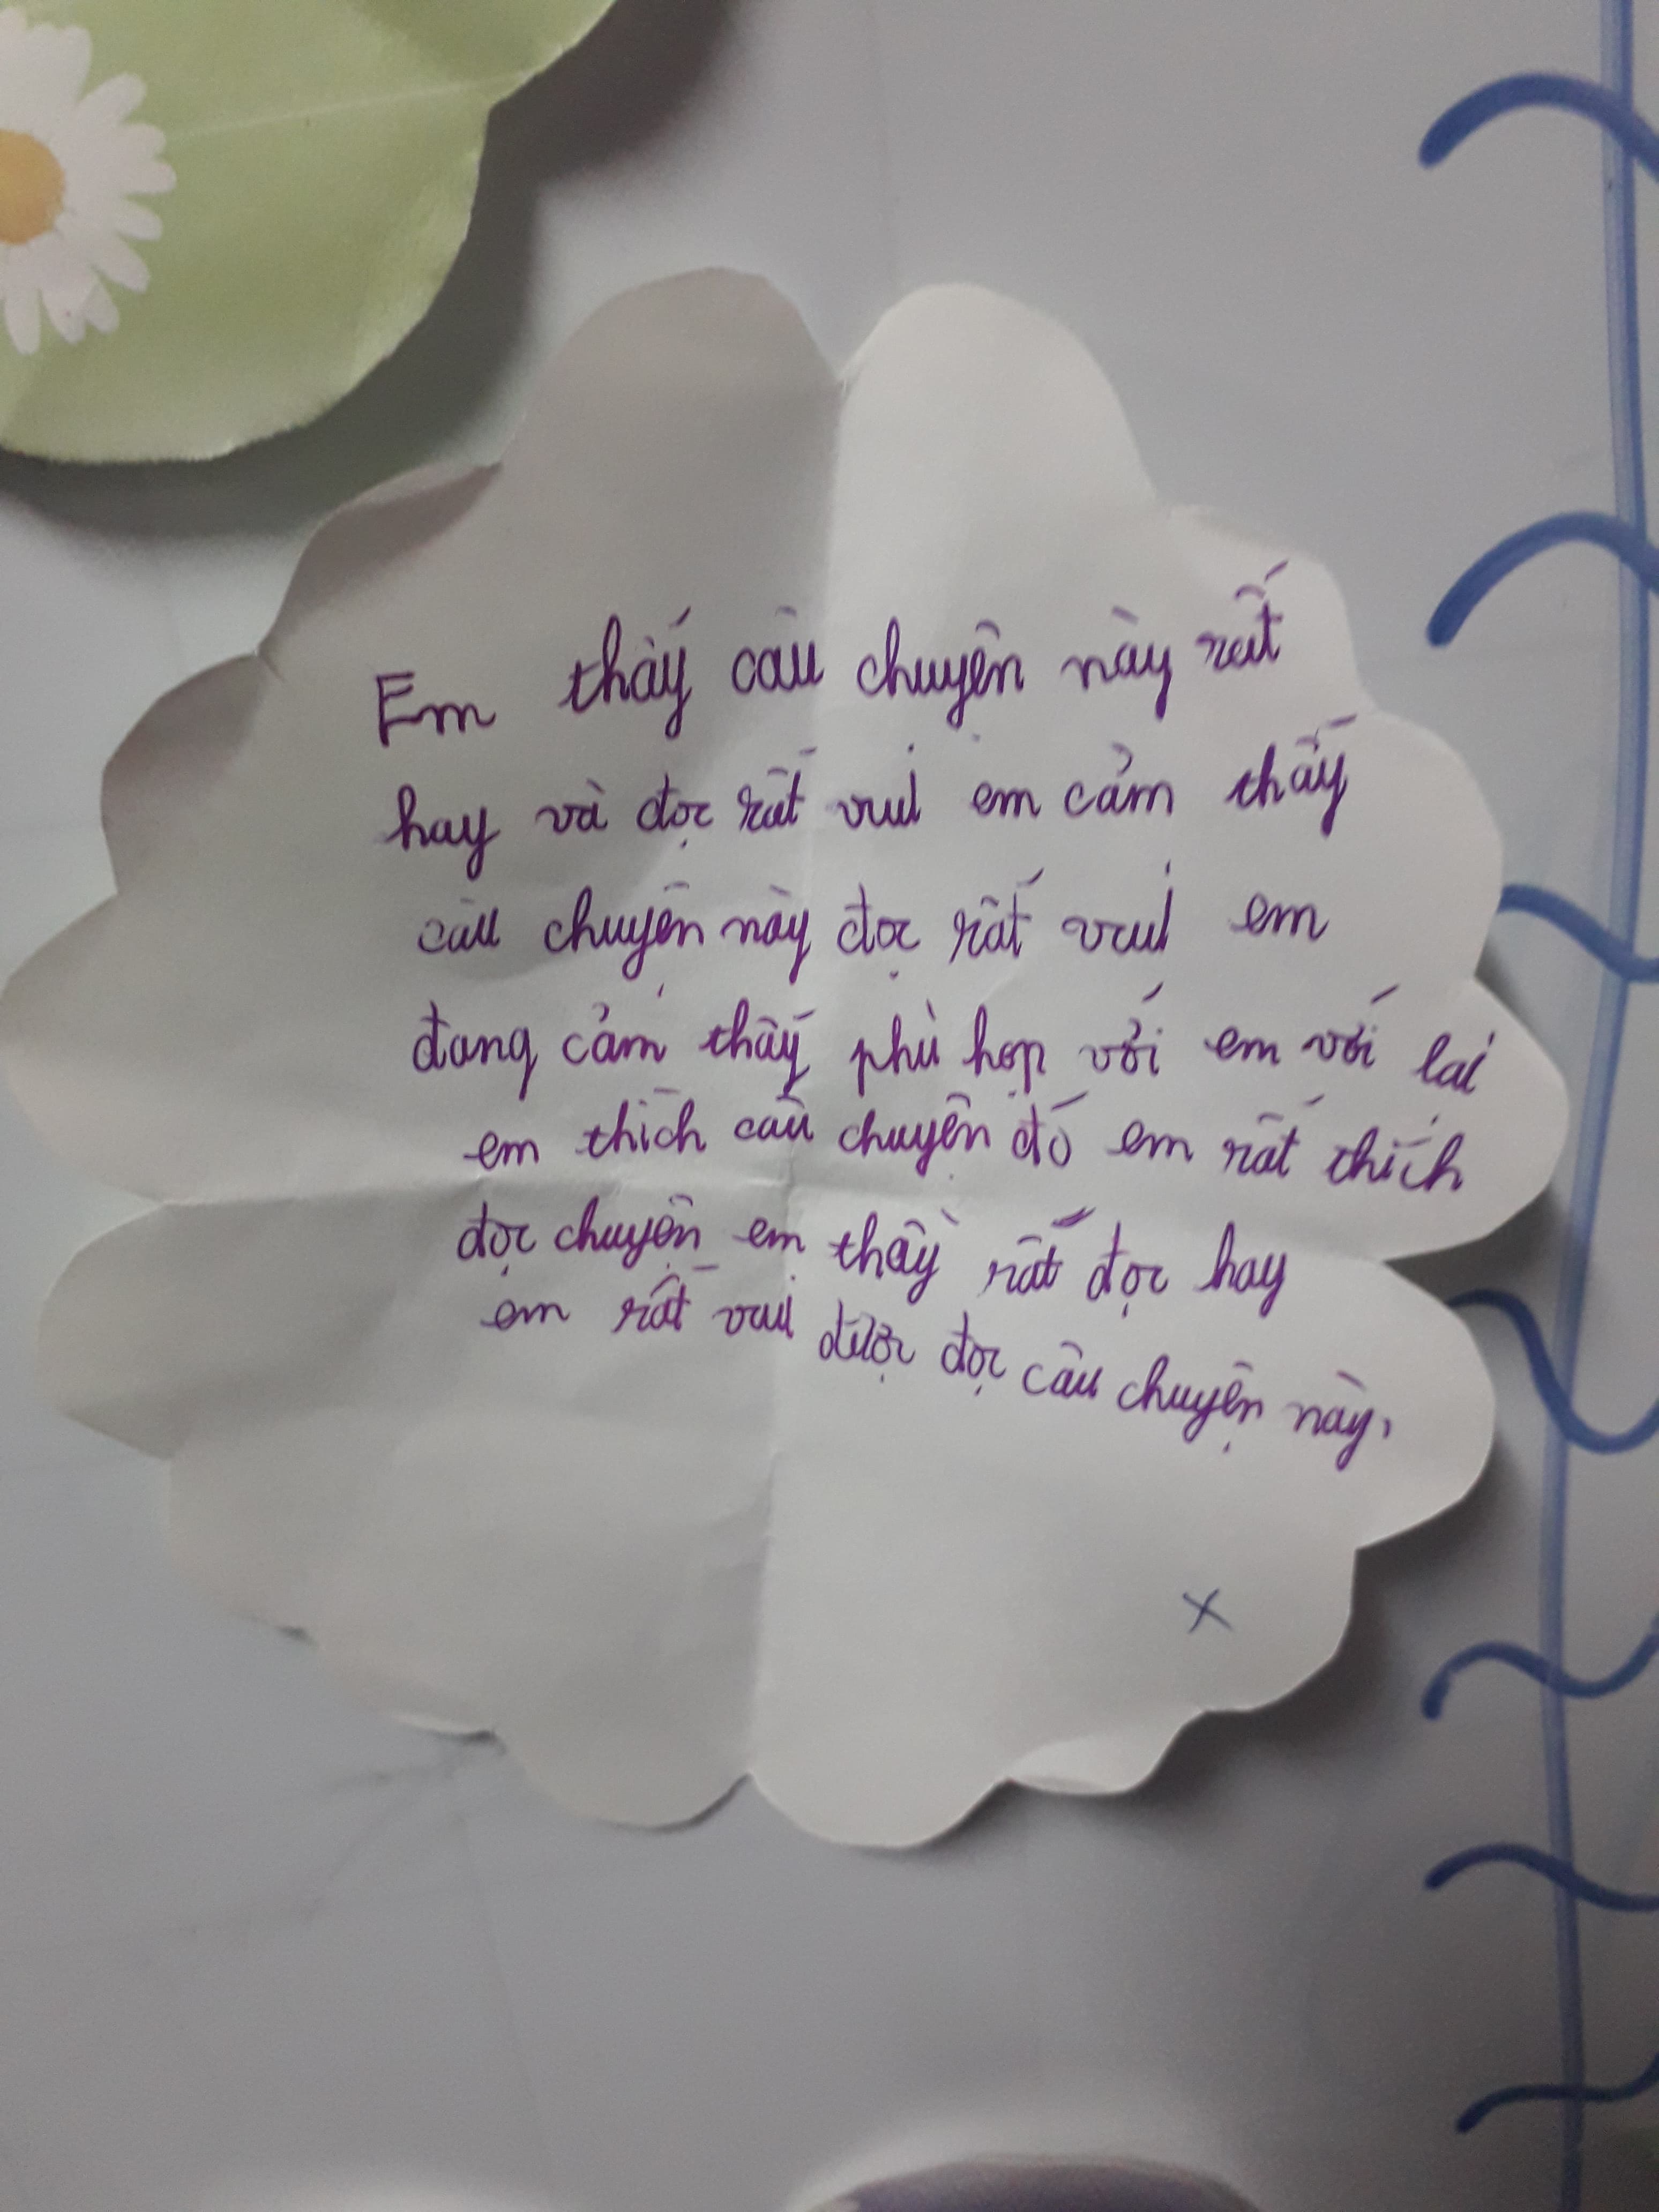 Em thấy câu chuyện này rất
hay và đọc rất vui em cảm thấy
câu chuyện này đọc rất vui em
đang cảm thấy phù hợp với em với lại
em thích câu chuyện đó em rất thích
đọc chuyện em thầy rất đọc hay
em rất vui được đọc câu chuyện này,
x